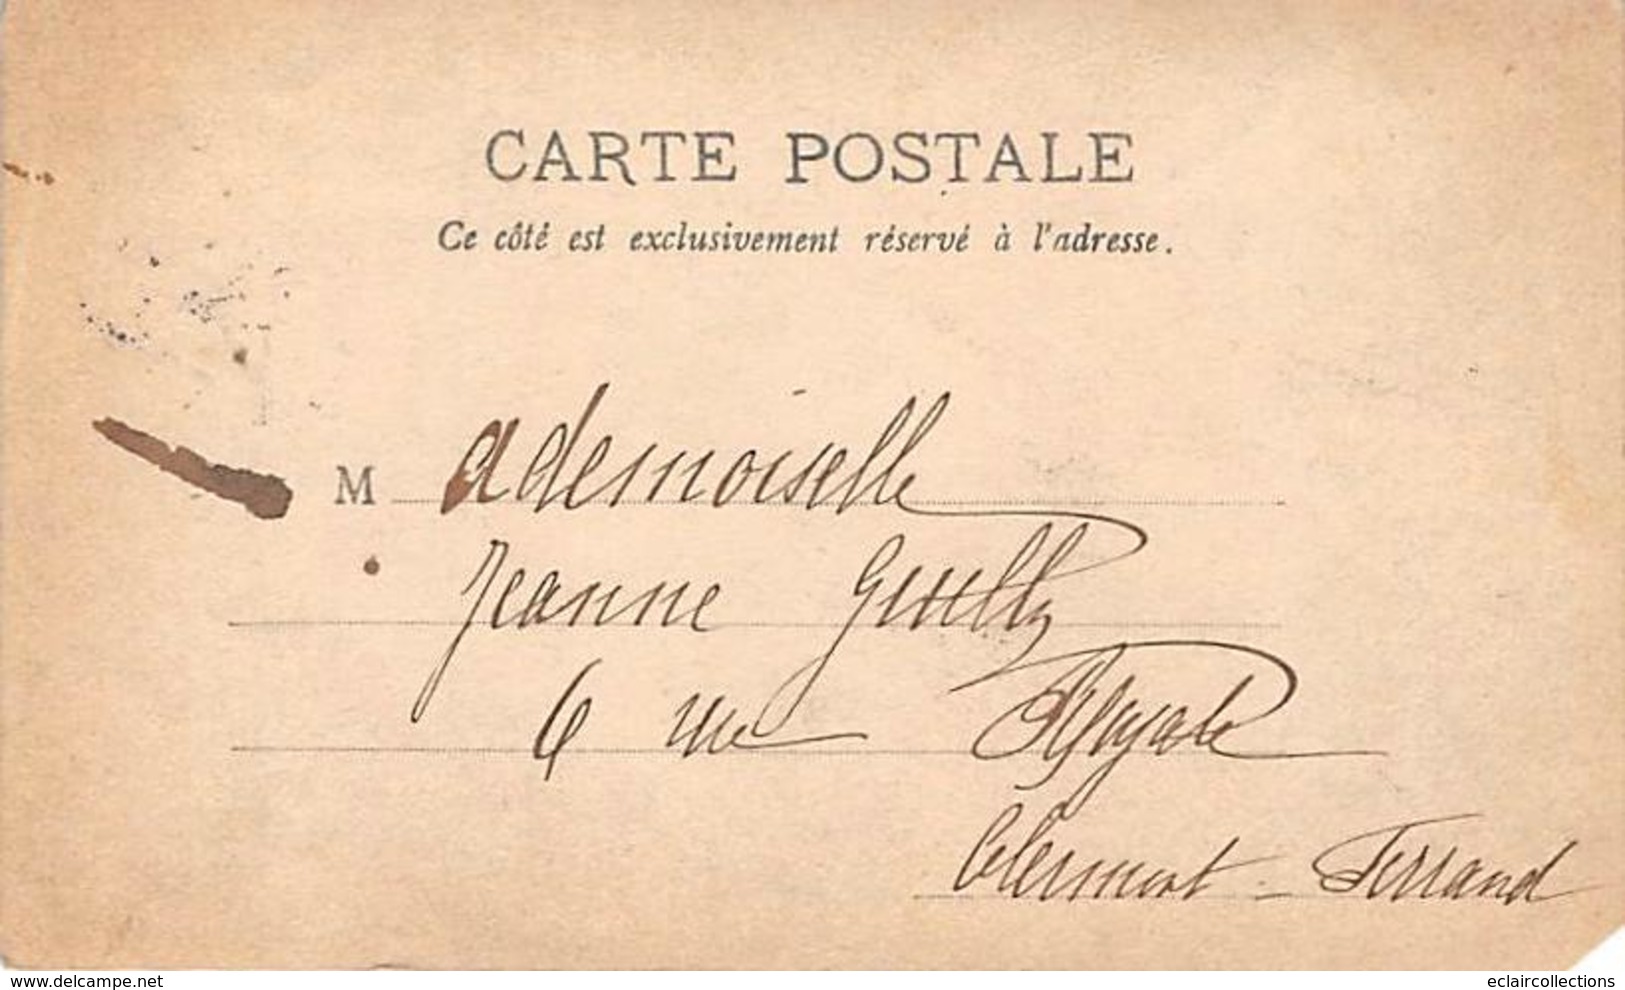 CARTE POSTALE
Ce côté est exclusivement réservé à l'adresse.
Mademoiselle
Jeanne
6 rue Royale
Clermont-Ferrand
www.delcampe.net
eclaircollections